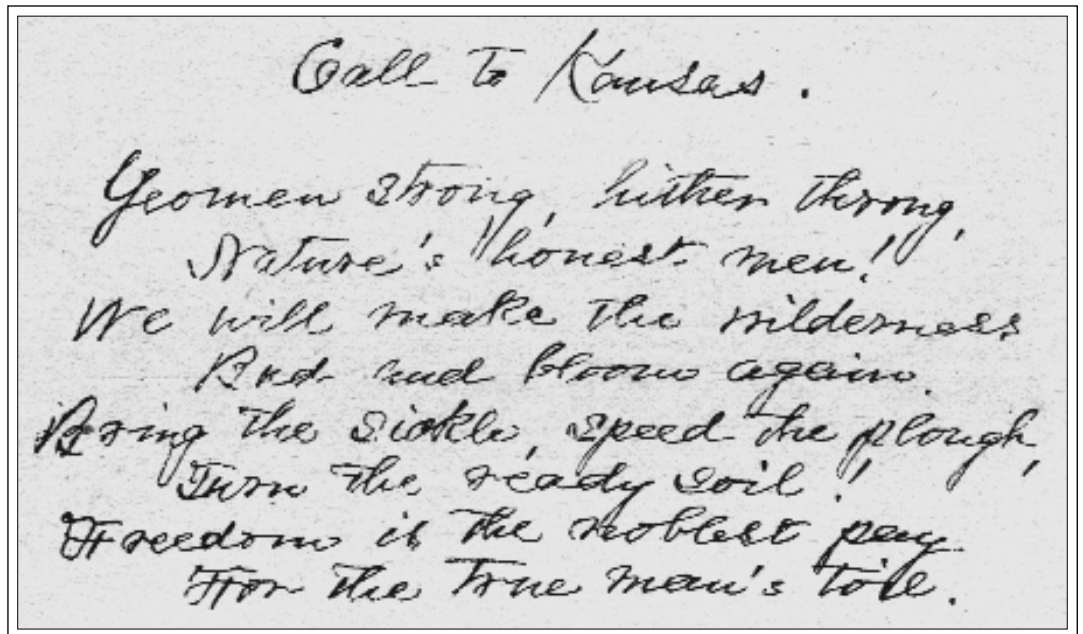 Call to Kansas.
Yeomen strong, hither throng,
Nature's honest men!
We will make the wilderness
Bud and bloom again.
Bring the sickle, speed the plough,
Turn the ready soil!
Freedom is the noblest pay
For the true man's toil.